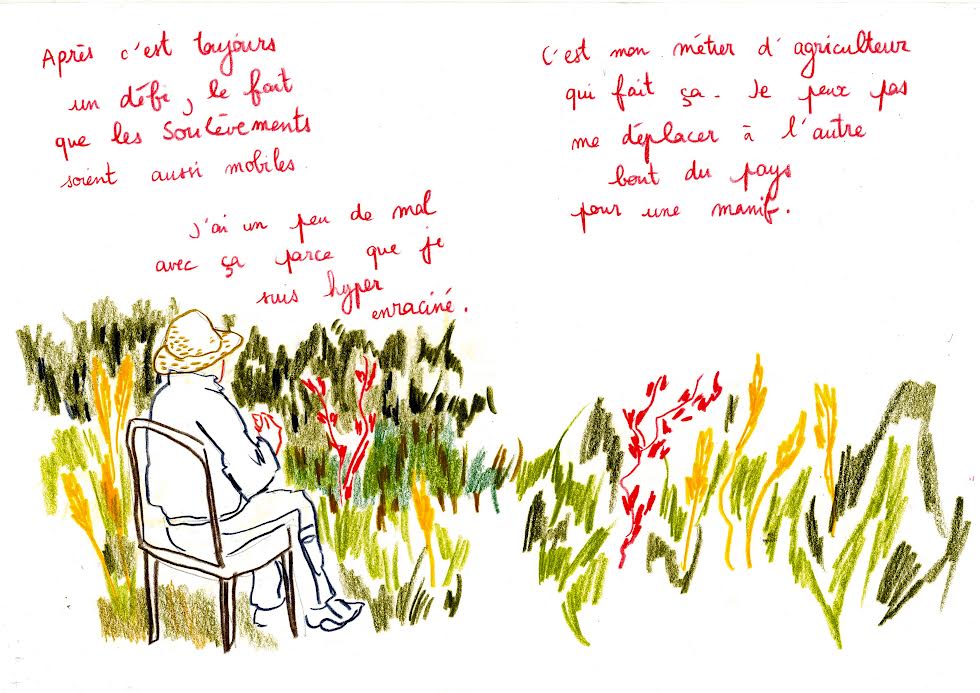 Après c'est toujours
un défi, le fait
que les Soulèvements
soient aussi mobiles.
J'ai un peu de mal
avec ça parce que je
suis hyper
enraciné.
C'est mon métier d'agriculteur
qui fait ça. Je peux pas
me déplacer à l'autre
bout du pays
pour une manif.